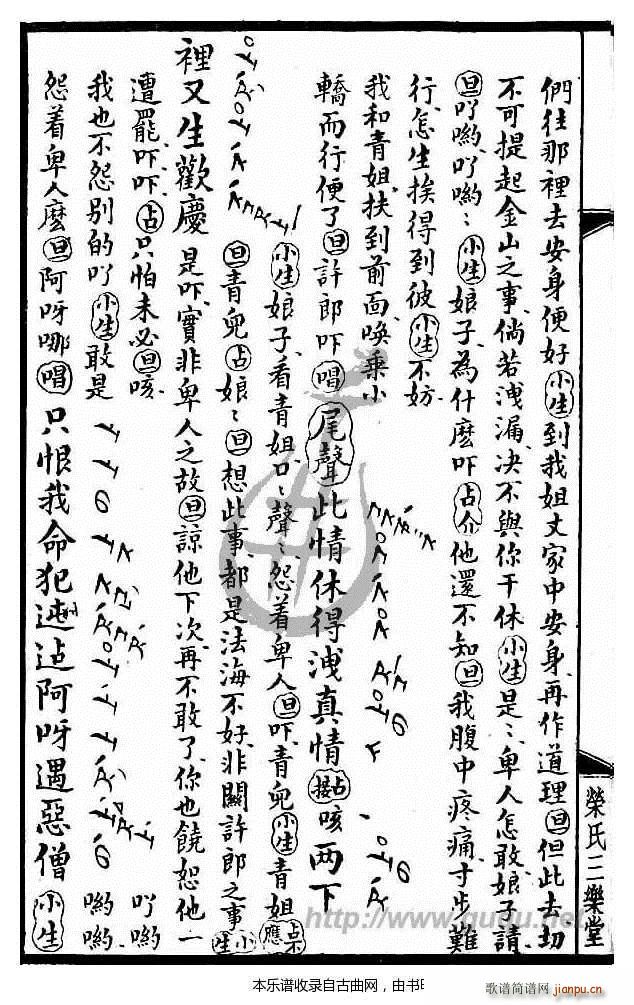 們往那裡去安身便好小生到我姐丈家中安身再作道理旦但此去切
不可提起金山之事倘若洩漏决不與你干休小生是〻卑人怎敢娘子請
旦吖喲吖喲〻小生娘子為什麽吓占介他還不知旦我腹中疼痛寸步難
行怎生挨得到彼小生不妨
我和青姐扶到前面喚乗小
轎而行便了旦許郎吓唱尾聲此情休得洩真情占接咳两下
小生娘子看青姐口〻聲〻怨着卑人旦吓青兒小生青姐占不應
旦青兒占娘〻旦想此事都是法海不好非關許郎之事小生
裡又生歡慶是吓實非卑人之故旦諒他下次再不敢了你也饒恕他一
遭罷吓吓占只怕未必旦咳
我也不怨別的吖小生敢是
吖喲
喲喲
怨着卑人麽旦阿呀哪唱只恨我命犯迍邅阿呀遇惡僧小生
榮氏三樂堂
http://www.guqu.net
本乐谱收录自古曲网，由书
歌谱简谱网
jianpu.cn